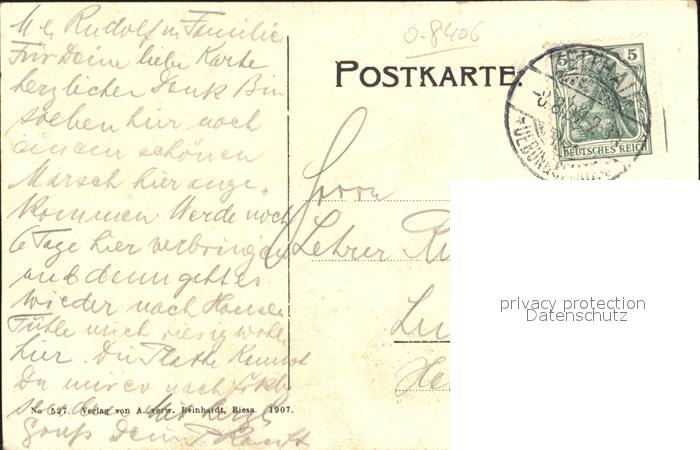 0-8406
POSTKARTE.
5 5
DEUTSCHES REICH
Rudolf m Familie
Für Deine liebe Karte
herzlicher Dank Bin
soeben hier nach
einem schönen
Marsch hier ange-
kommen Werde noch
6 Tage hier verbringen
und dann geht es
wieder nach Hause
Fühle mich riesig wohl
hier. Die Platte kannst
Du
Gruß Dein
Herrn
Lehrer
No 527. Verlag von A. verw. Reinhardt, Riesa. 1907.
privacy protection
Datenschutz